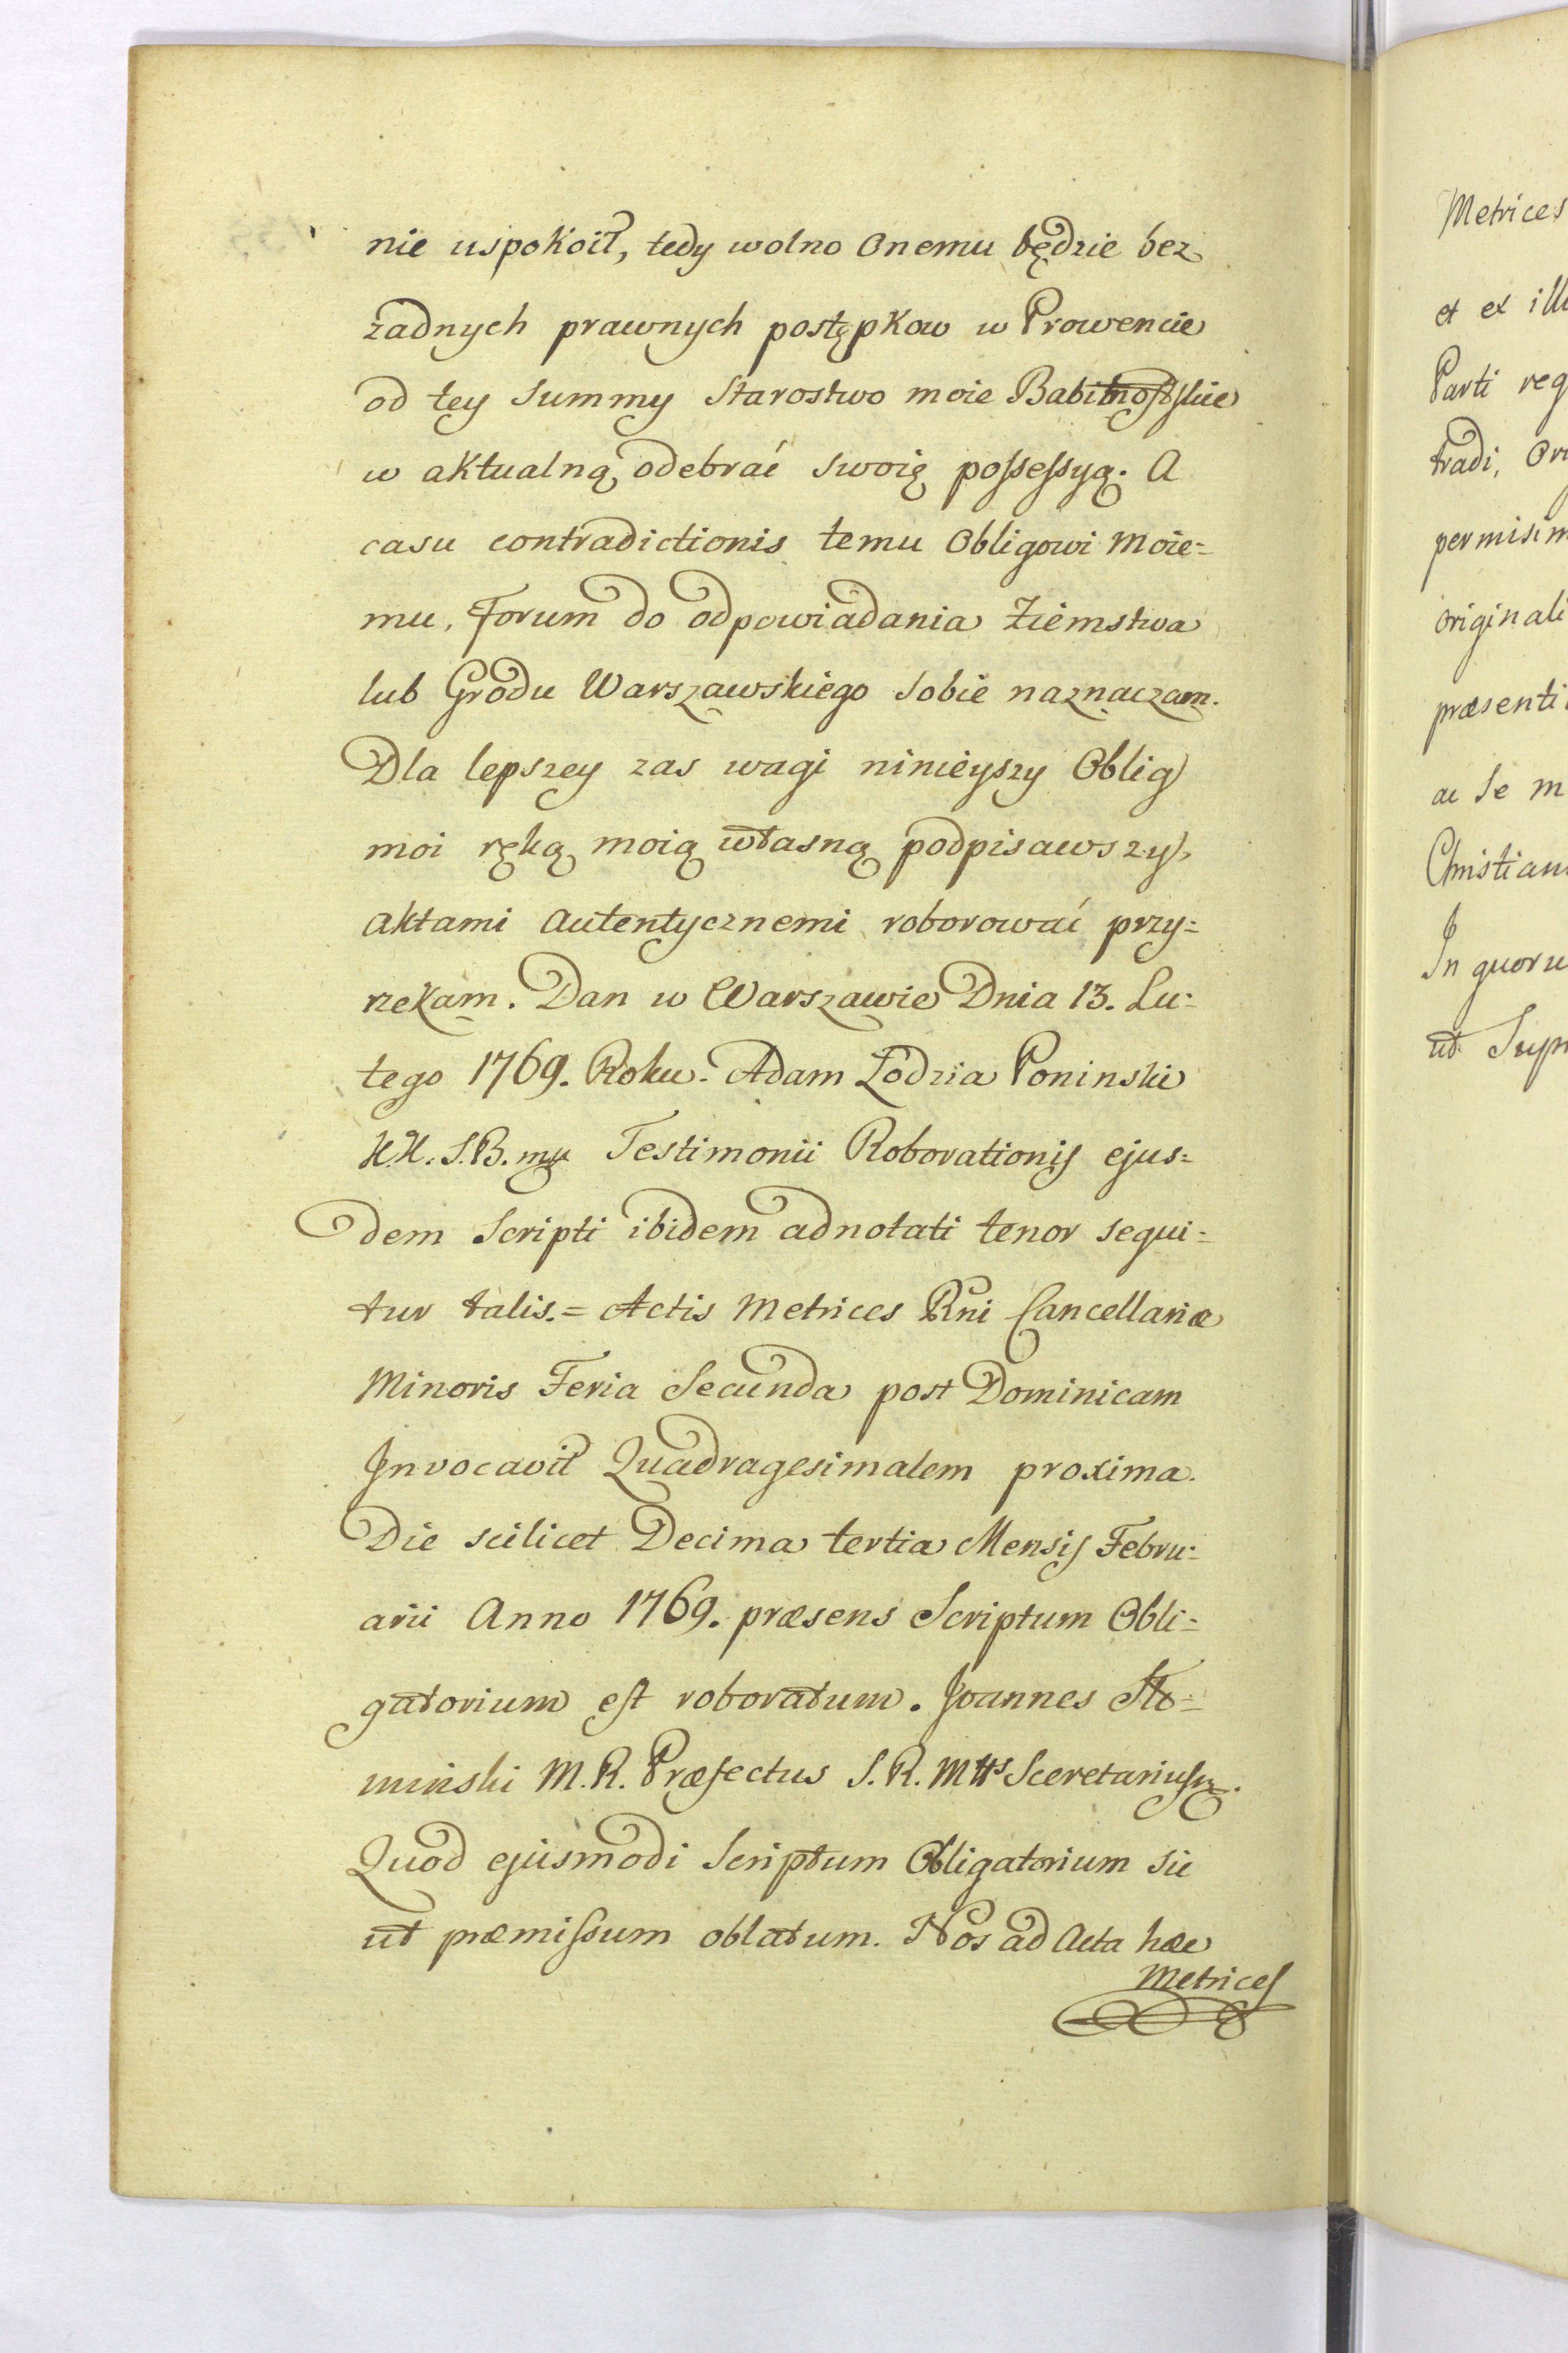 nie uspokoił, tedy wolno onemu będzie bez
zadnych prawnych postępkow w Prowencie
od tey Summy Starostwo moie Babimostskie
w aktualną odebrać swoię possessyą. A
casu contradictionis temu Obligowi moie=
mu, Forum do odpowiadania Ziemstwa
lub Grodu Warszawskiego sobie naznaczam.
Dla lepszey zas wagi ninieyszy Oblig
moi ręką moią własną podpisawszy,
aktami autentycznemi roborować przy=
rzekam. Dan w Warszawie Dnia 13. Lu=
tego 1769. Roku. Adam Łodzia Poninski
K.K. S.B. mp Testimonii Roborationis ejus=
dem Scripti ibidem adnotati tenor sequi=
tur talis.= Actis Metrices Rni Cancellariæ
Minoris Feria Secunda post Dominicam
Invocavit Quadragesimalem proxima.
Die scilicet Decima tertia Mensis Febru=
arii Anno 1769. præsens Scriptum Obli=
gatorium est roboratum. Joannes Sło=
minski M.R. Præfectus S.R. Mttis Secretarius mp.
Quod ejusmodi Scriptum Obligatorium sic
ut præmissum oblatum. Nos ad Acta hæc
Metrices
Metrices
et ex
Parti
tradi,
originali
ac Se
In
ut